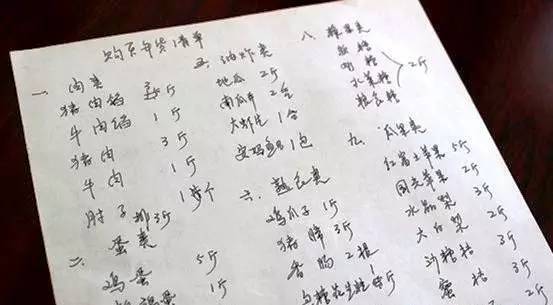 购买年货清单
一、肉类
猪肉馅 3斤
牛肉馅 1斤
猪肉 3斤
牛肉 1斤
肘子 1个
排 3斤
二、蛋类
鸡蛋 5斤
五、油炸类
地瓜 2斤
南瓜 2盒
大虾 1盒
1包
六、熟食类
鸡爪子 1斤
猪蹄 3斤
香肠 2根
花生
八、糖果类
酥糖
2斤
九、瓜果类
红富士苹果 5斤
国光苹果 2斤
水晶梨 3斤
大白梨 2斤
沙糖桔 3斤
蜜桔 3斤
2斤